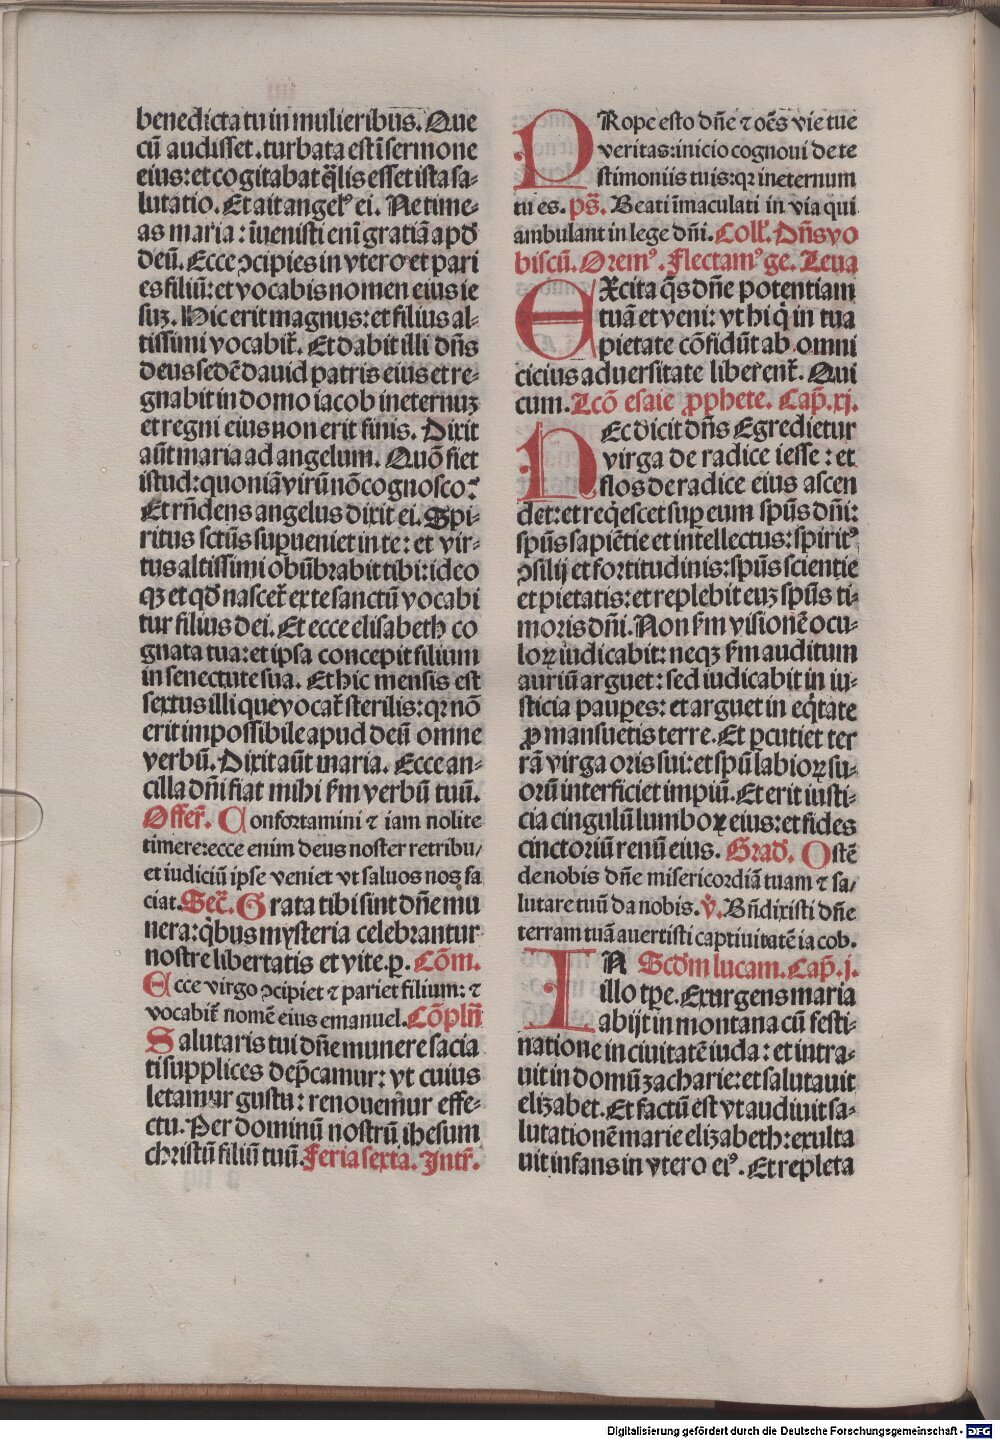 benedicta tu in mulieribus. Que
cū audisset. turbata est ī sermone
eius: et cogitabat q̄lis esset ista sa-
lutatio. Et ait angelꝰ ei. Ne time-
as maria: īuenisti eni᷒ gratiā apd̄
deū. Ecce ↄcipies in vtero et pari
es filiū: et vocabis nomen eius ie
suʒ. Hic erit magnus: et filius al-
tissimi vocabit᷑. Et dabit illi dn̄s
deus sedē dauid patris eius et re-
gnabit in domo iacob in eternuʒ
et regni eius non erit finis. Dixit
aūt maria ad angelum. Quō fiet
istud: quoniā virū nō cognosco?
Et rn̄dens angelus dixit ei. Spi-
ritus sctūs supueniet in te: et vir-
tus altissimi obūbrabit tibi: ideo
qʒ et qd̄ nascet᷑ ex te sanctū vocabi
tur filius dei. Et ecce elisabeth co
gnata tua: et ipsa concepit filium
in senectute sua. Et hic mensis est
sextus illi que vocat᷑ sterilis: qꝛ nō
erit impossibile apud deū omne
verbū. Dixit aūt maria. Ecce an-
cilla dn̄i fiat mihi fm verbū tuū.
Offer᷑. Confortamini ⁊ iam nolite
timere: ecce enim deus noster retribu/
et iudiciū ipse veniet vt saluos nos fa
ciat. Sec᷑. Grata tibi sint dn̄e mu
nera: q̄bus mysteria celebrantur
nostre libertatis et vite. p. Cōm.
Ecce virgo ↄcipiet ⁊ pariet filium: ⁊
vocabit᷑ nomē eius emanuel. Cōpln̄
Salutaris tui dn̄e munere sacia
ti supplices dep̄camur: vt cuius
letamur gustu: renouemur effe-
ctu. Per dominū nostrū ihesum
christū filiū tuū. Feria sexta. Intr᷑.
PRope esto dn̄e ⁊ oēs vie tue
veritas: inicio cognoui de te
stimoniis tuis: qꝛ in eternum
tu es. ps̄. Beati īmaculati in via qui
ambulant in lege dn̄i. Coll᷑. Dn̄s vo
biscū. Oremꝰ. Flectamꝰ ge. Leua
EXcita q̄s dn̄e potentiam
tuā et veni: vt hi q̇ in tua
pietate cōfidūt ab omni
cicius aduersitate liberent᷑. Qui
cum. Lcō esaie ꝓphete. Cap̄. xj.
HEc dicit dn̄s Egredietur
virga de radice iesse: et
flos de radice eius ascen
det: et reqesc̄et sup eum spūs dn̄i:
spūs sapiētie et intellectus: spiritꝰ
ↄsilij et fortitudinis: spūs scientie
et pietatis: et replebit euʒ spūs ti-
moris dn̄i. Non fm visionē ocu-
loꝝ iudicabit: neqʒ fm auditum
auriū arguet: sed iudicabit in iu-
sticia pauꝑes: et arguet in eq̇tate
ꝓ mansuetis terre. Et ꝑcutiet ter
rā virga oris sui: et spū labioꝝ su-
orū interficiet impiū. Et erit iusti-
cia cingulū lumboꝝ eius: et fides
cinctoriū renū eius. Grad᷑. Ostē
de nobis dn̄e misericordiā tuam ⁊ sa/
lutare tuū da nobis. v᷑. Bn̄dixisti dn̄e
terram tuā auertisti captiuitatē iacob.
IN Scdm lucam. Cap̄. j.
illo tp̄e. Exurgens maria
abijt in montana cū festi-
natione in ciuitatē iuda: et intra-
uit in domū zacharie: et salutauit
elizabet. Et factū est vt audiuit sa-
lutationē marie elizabeth: exulta
uit infans in vtero eiꝰ. Et repleta
Digitalisierung gefördert durch die Deutsche Forschungsgemeinschaft - DFG